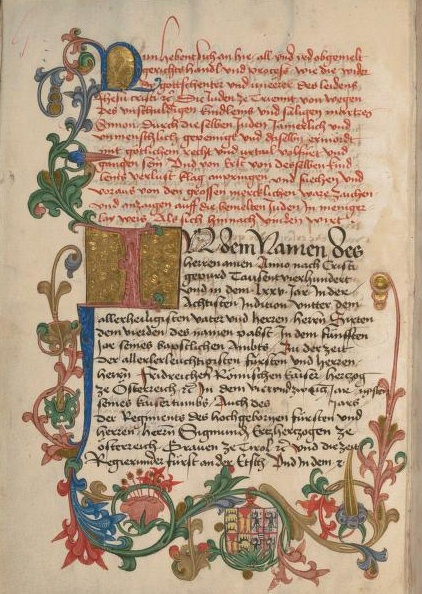 Nun hebent sich an hie, all und ydd obgemelt
gerichtshandl und process wie die wider
gottschenter und unerer des leidens
Jhesu cristi &c Die Juden ze Trienntt von wegen
des unschuldigen kindleins und saligen martrers
Simon, Durch die selben Juden Jamerlich und
unmenschlich gepeinigt und daselbs ermördt
mit götlichem recht und urtail volfürt und
gangen sein Und von erst von desselben kind
leins verlust klag anbringen und suechen und
voraus von den grossen mercklichen warzaichen
und anzaigen auff die bemelten Juden in meniger
lai weis Als sich hernach vinden wirt
In dem Namen des
herren amen Anno nach Cristi
gepurd Tausent vierhundert
und in dem lxxv Jar In der
Achtisten Indition Unter dem
allerheiligisten vater und herren herrn Sixten
dem vierden des namen pabst In dem funfften
Jar seines bapstlichen Ambts Zu der zeit
der allerleuchtigisten fürsten und herren
herrn Fridreichen Römischen kaiser hertzog
ze Österreich &c In dem Jar
seines kaisertumbs Auch des Jars
der Regiments des hochgebornen fürsten und
herren herrn Sigmunds Ertzhertzogen ze
österreich Graven ze Tirol &c Und die zeit
Regierunder fürst an der Etsch Und In dem